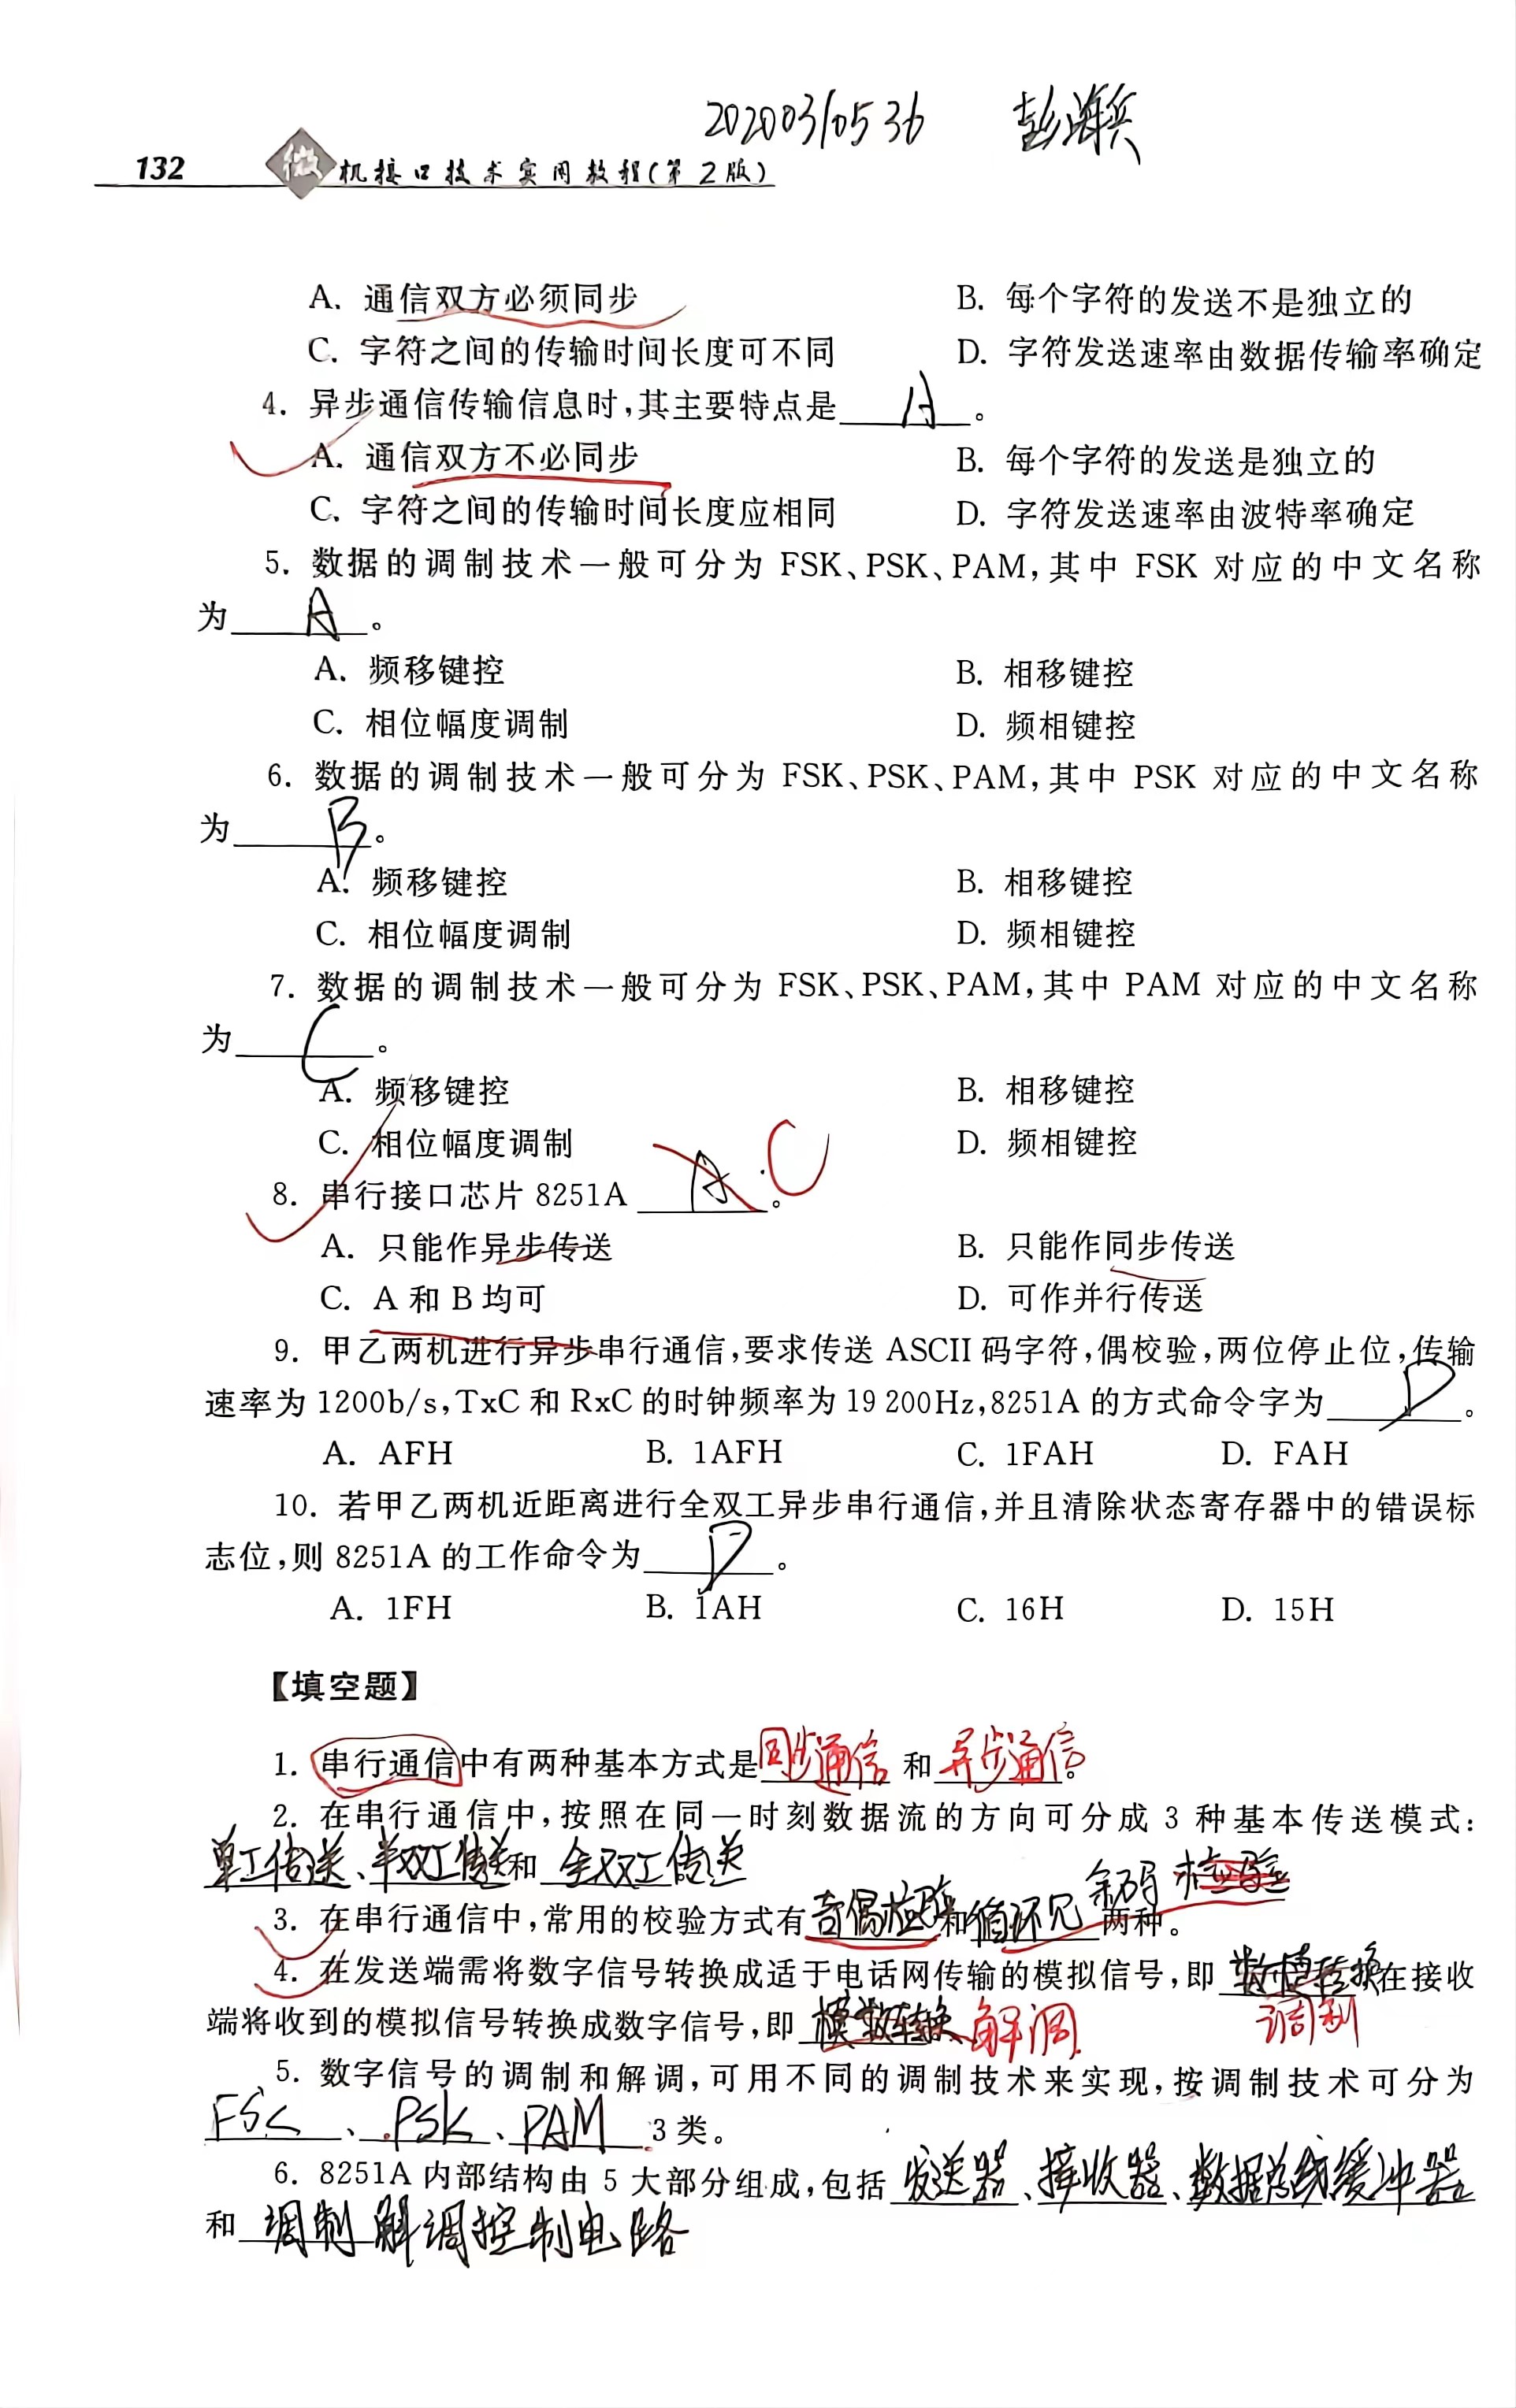 20200310536 彭海兵
132 微机接口技术实用教程(第2版)
A. 通信双方必须同步 B. 每个字符的发送不是独立的
C. 字符之间的传输时间长度可不同 D. 字符发送速率由数据传输率确定
4. 异步通信传输信息时,其主要特点是 A 。
A. 通信双方不必同步 B. 每个字符的发送是独立的
C. 字符之间的传输时间长度应相同 D. 字符发送速率由波特率确定
5. 数据的调制技术一般可分为 FSK、PSK、PAM,其中 FSK 对应的中文名称
为 A 。
A. 频移键控 B. 相移键控
C. 相位幅度调制 D. 频相键控
6. 数据的调制技术一般可分为 FSK、PSK、PAM,其中 PSK 对应的中文名称
为 B 。
A. 频移键控 B. 相移键控
C. 相位幅度调制 D. 频相键控
7. 数据的调制技术一般可分为 FSK、PSK、PAM,其中 PAM 对应的中文名称
为 C 。
A. 频移键控 B. 相移键控
C. 相位幅度调制 D. 频相键控
8. 串行接口芯片 8251A A 。 C
A. 只能作异步传送 B. 只能作同步传送
C. A 和 B 均可 D. 可作并行传送
9. 甲乙两机进行异步串行通信,要求传送 ASCII 码字符,偶校验,两位停止位,传输
速率为 1200b/s,TxC 和 RxC 的时钟频率为 19 200Hz,8251A 的方式命令字为 D 。
A. AFH B. 1AFH C. 1FAH D. FAH
10. 若甲乙两机近距离进行全双工异步串行通信,并且清除状态寄存器中的错误标
志位,则 8251A 的工作命令为 D 。
A. 1FH B. 1AH C. 16H D. 15H
【填空题】
1. 串行通信中有两种基本方式是 同步通信 和 异步通信 。
2. 在串行通信中,按照在同一时刻数据流的方向可分成 3 种基本传送模式:
单工传送、半双工传送 和 全双工传送
3. 在串行通信中,常用的校验方式有 奇偶检验 和 循环冗余码 检验 两种。
4. 在发送端需将数字信号转换成适于电话网传输的模拟信号,即 数模转换 在接收
调制
端将收到的模拟信号转换成数字信号,即 模数转换、解调
5. 数字信号的调制和解调,可用不同的调制技术来实现,按调制技术可分为
FSK、PSK、PAM 3 类。
6. 8251A 内部结构由 5 大部分组成,包括 发送器、接收器、数据总线缓冲器
和 调制解调控制电路